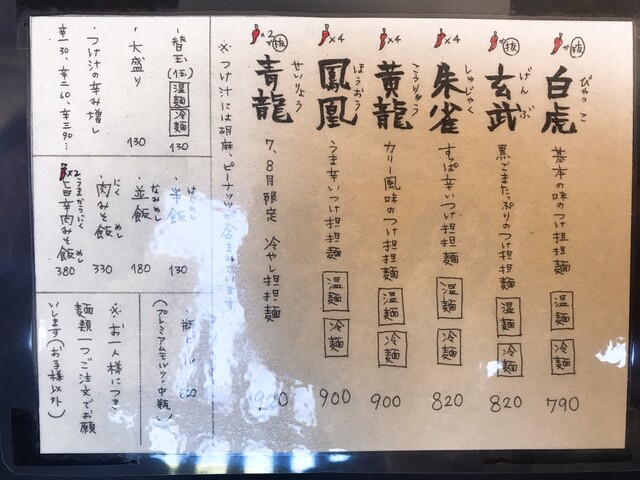 抜
びゃっこ
白虎
基本の味のつけ担担麺
温麺
冷麺
790
抜
げんぶ
玄武
黒ごまたっぷりのつけ担担麺
温麺
冷麺
820
×4
しゅじゃく
朱雀
すっぱ辛いつけ担担麺
温麺
冷麺
820
×4
こうりゅう
黄龍
カリー風味のつけ担担麺
温麺
冷麺
900
×4
ほうおう
鳳凰
うま辛いつけ担担麺
温麺
冷麺
900
×2 抜
せいりょう
青龍
7、8月限定 冷やし担担麺
900
※つけ汁には胡麻、ピーナッツが含まれています
・替玉(1玉) 温麺 冷麺 130
・大盛り 130
・つけ汁の辛み増し
辛一30、辛二60、辛三90…
・半飯 130
はんめし
・並飯 180
なみめし
・肉みそ飯 330
にく めし
×2
旨辛肉みそ飯 380
うまからにく めし
・瓶ビール
(プレミアムモルツ・中瓶)
※お一人様につき
麺類一つご注文でお願
いします(お子様以外)